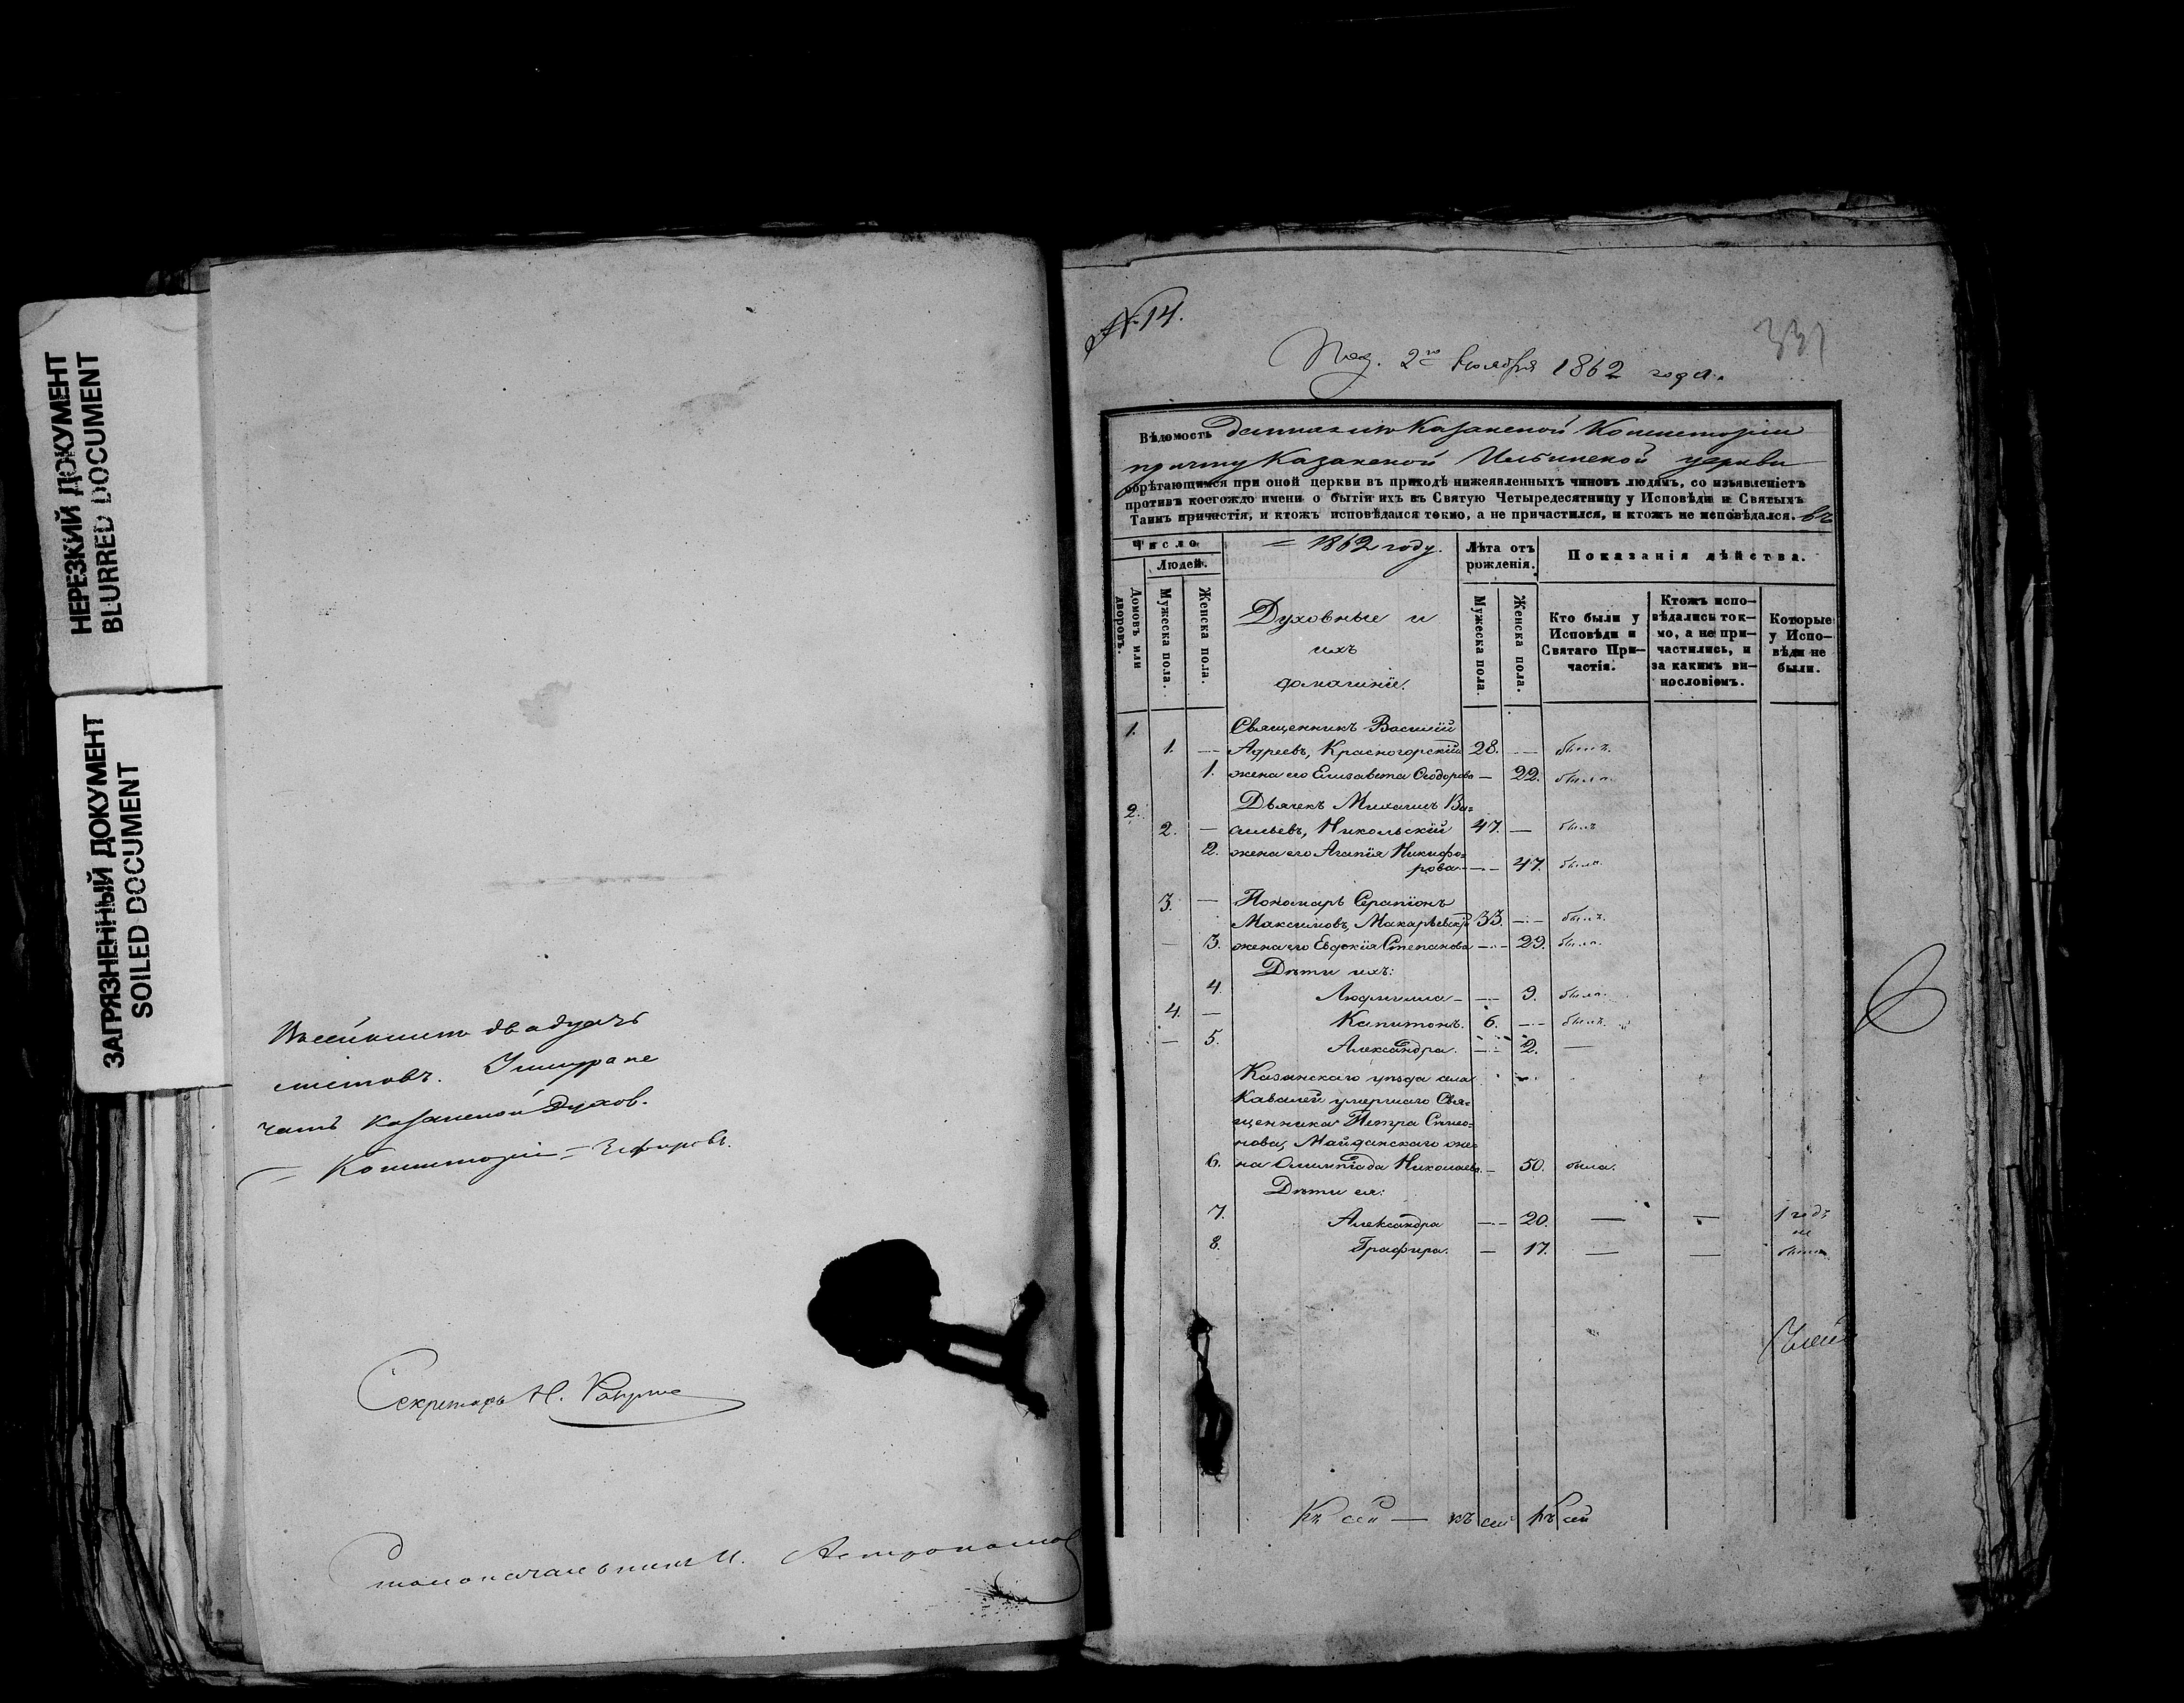 НЕРЕЗКИЙ ДОКУМЕНТ
BLURRED DOCUMENT
ЗАГРЯЗНЕННЫЙ ДОКУМЕНТ
SOILED DOCUMENT
двадцать
листовъ. У сицра пе
чать Казанской Духов.
Консисторіи = Зефировъ.
Секретарь Н.
Столоначальникъ И. Астрономов
№ 14.
331
2го Ноября 1862 года.
Вѣдомость дана изъ Казанской Консисторіи
причту Казанской Ильинской церкви
обрѣтающимся при оной церкви въ приходѣ нижеявленныхъ чиновъ людямъ, со изъявленіемъ
противъ коегождо имени о бытіи ихъ въ Святую Четыредесятницу у Исповѣди и Святыхъ
Таинъ причастія, и ктожъ исповѣдался токмо, а не причастился, и ктожъ не исповѣдался. въ
Число
= 1862 году.
Лѣта отъ рожденія.
Показанія дѣйства.
Людей.
Домовъ или дворовъ.
Мужеска пола.
Женска пола.
Духовные и
ихъ
домашніе.
Мужеска пола.
Женска пола.
Кто были у Исповѣди и Святаго Причастія.
Ктожъ испо-вѣдались ток-мо, а не при-частились, и за какимъ ви-нословіемъ.
Которые у Испо-вѣди не были.
1. Священникъ Василій
1. — Адреевъ, Красногорскій 28. — былъ.
1. жена его Елисавета Ѳеодорова — 22. была.
2. Дьячекъ Михаилъ Ва=
2. — сильевъ, Никольскій 47. — былъ
2. жена его Агапія Никифо=
рова — 47. была.
3. — Пономарь Серапіонъ
Максимовъ, Макарьевскій 33. — былъ.
— 3. жена его Евдокія Степанова — 29. была.
Дѣти ихъ:
4. Людмилла — — 9. была.
4. — Капитонъ. 6. — былъ.
— 5. Александра. — 2. —
Казанскаго уѣзда села
Кавалей умершаго Свя=
щенника Петра Симео=
нова, Майданскаго же=
6. на Олимпіада Николаева. — 50. была.
Дѣти ея:
7. Александра — 20. — — 1 годъ
не
8. Графира. — 17. — — были
Къ сей — къ сей къ сей